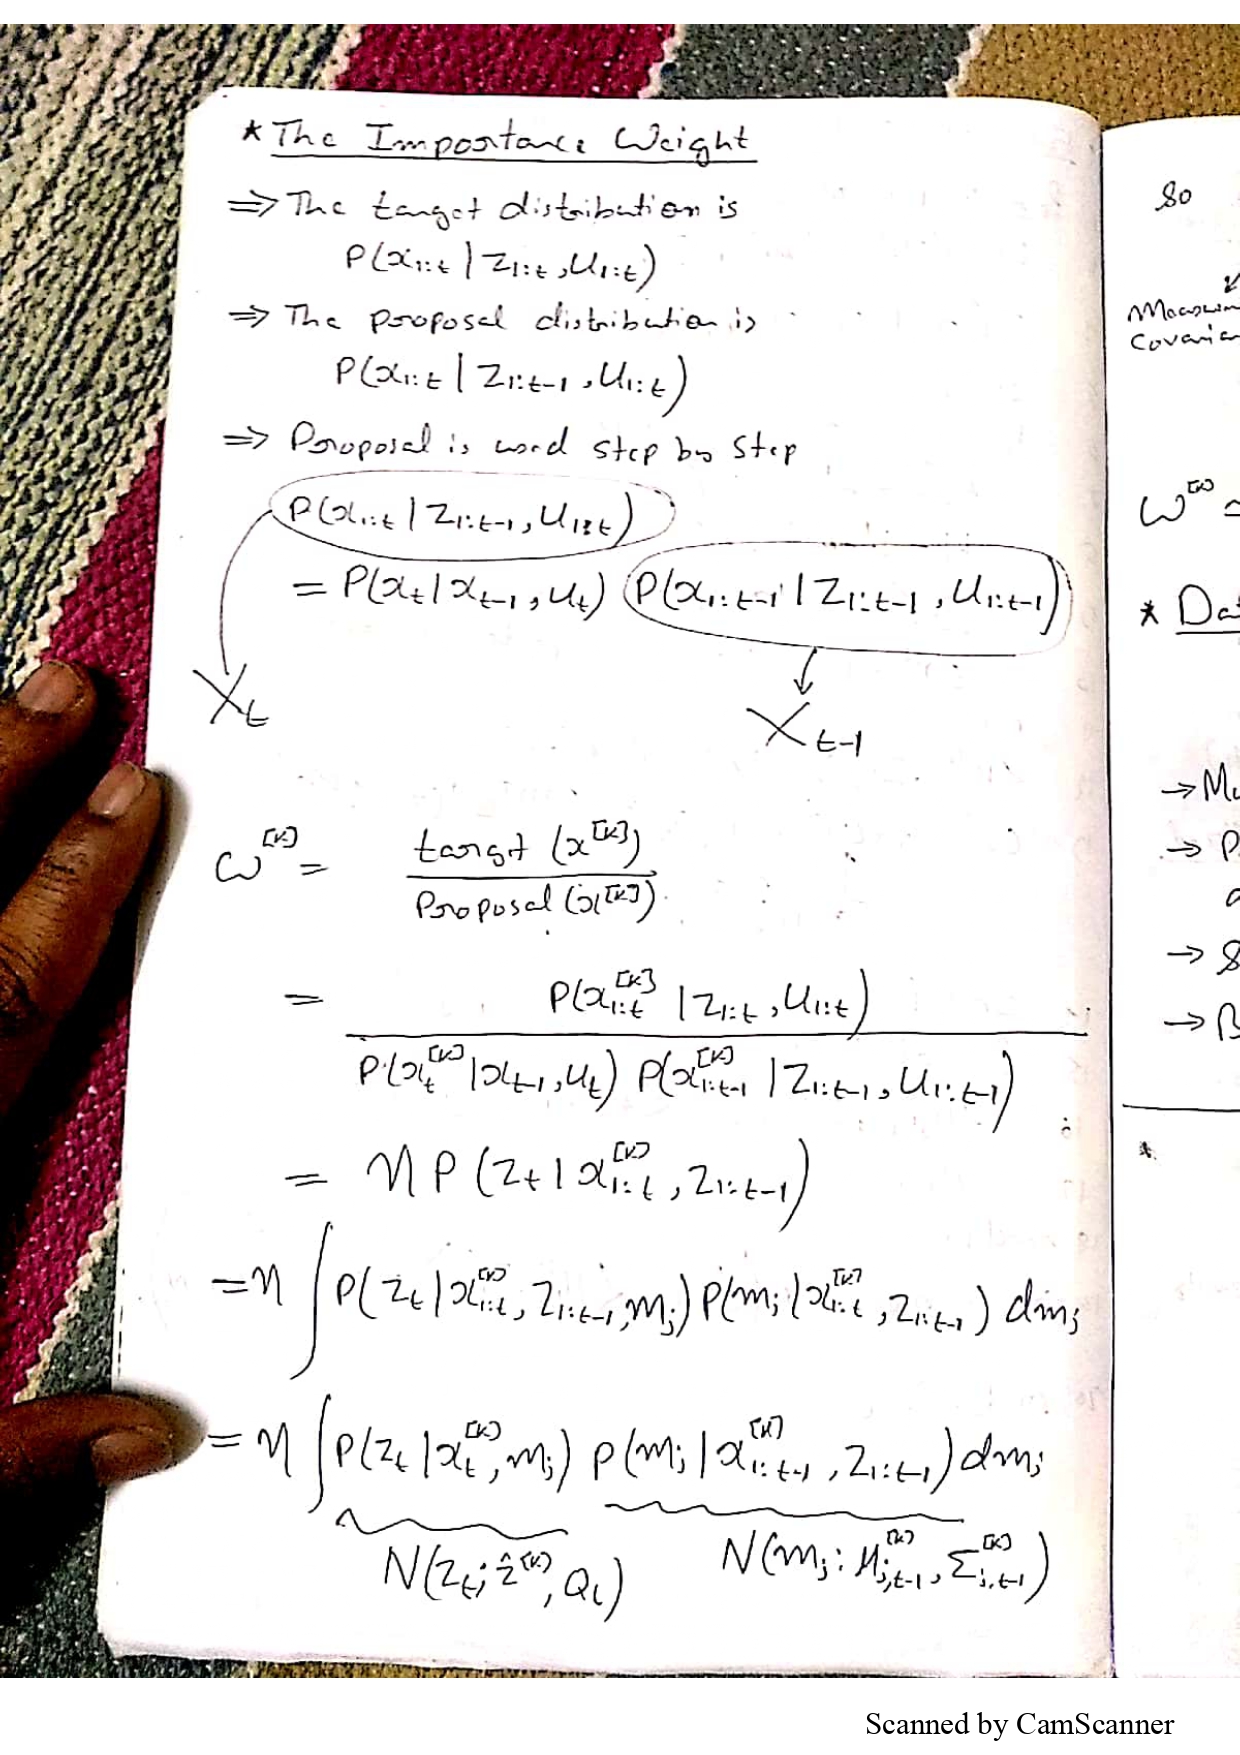 * The Importance Weight
⇒ The target distribution is
P(x₁:t | z₁:t, u₁:t)
⇒ The proposal distribution is
P(x₁:t | z₁:t-1, u₁:t)
⇒ Proposal is used step by step
P(x₁:t | z₁:t-1, u₁:t)
= P(xt | xt-1, ut) P(x₁:t-1 | z₁:t-1, u₁:t-1)
Xt
Xt-1
ω[k] = target (x[k]) / Proposal (x[k])
= P(x₁:t[k] | z₁:t, u₁:t) / P(xt[k] | xt-1, ut) P(x₁:t-1[k] | z₁:t-1, u₁:t-1)
= η P(zt | x₁:t[k], z₁:t-1)
= η ∫ P(zt | x₁:t[k], z₁:t-1, mj) P(mj | x₁:t[k], z₁:t-1) dmj
= η ∫ P(zt | xt[k], mj) p(mj | x₁:t-1[k], z₁:t-1) dmj
N(zt; ẑ[k], Qt)
N(mj; μj,t-1[k], Σj,t-1[k])
So
ω[k] =
*
→
→
→
→
*
Scanned by CamScanner